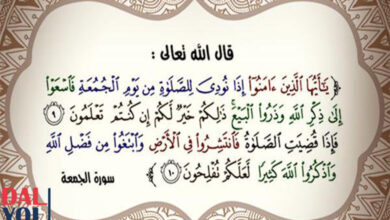 قال الله تعالى :
﴿ يَٰٓأَيُّهَا ٱلَّذِينَ ءَامَنُوٓا۟ إِذَا نُودِىَ لِلصَّلَوٰةِ مِن يَوْمِ ٱلْجُمُعَةِ فَٱسْعَوْا۟
إِلَىٰ ذِكْرِ ٱللَّهِ وَذَرُوا۟ ٱلْبَيْعَ ۚ ذَٰلِكُمْ خَيْرٌ لَّكُمْ إِن كُنتُمْ تَعْلَمُونَ ٩
فَإِذَا قُضِيَتِ ٱلصَّلَوٰةُ فَٱنتَشِرُوا۟ فِى ٱلْأَرْضِ وَٱبْتَغُوا۟ مِن فَضْلِ ٱللَّهِ
وَٱذْكُرُوا۟ ٱللَّهَ كَثِيرًا لَّعَلَّكُمْ تُفْلِحُونَ ١٠ ﴾ سورة الجمعة
DAL
YOU